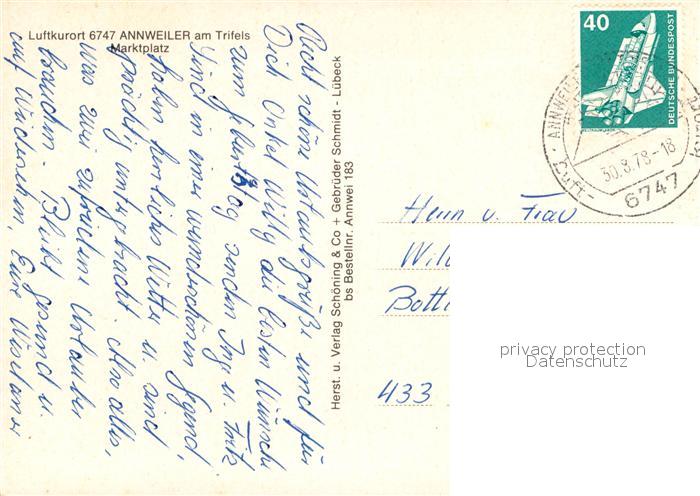 Luftkurort 6747 ANNWEILER am Trifels
Marktplatz
Recht schöne Urlaubsgrüße und für
Dich Onkel Willy die besten Wünsche
zum Geburtstag senden Inge u. Fritz
Sind in einer wunderschönen Gegend,
haben herrliches Wetter u. sind
prächtig untergebracht. Also alles,
was zwei zufriedene Urlauber
brauchen. Bleibt gesund u.
auf Wiedersehn, Eure
Herst. u. Verlag Schöning & Co + Gebrüder Schmidt - Lübeck
bs Bestellnr. Annwei 183
40
DEUTSCHE BUNDESPOST
30.8.78-18
6747
Luft-
Herrn u. Frau
Wil
Bott
433
privacy protection
Datenschutz